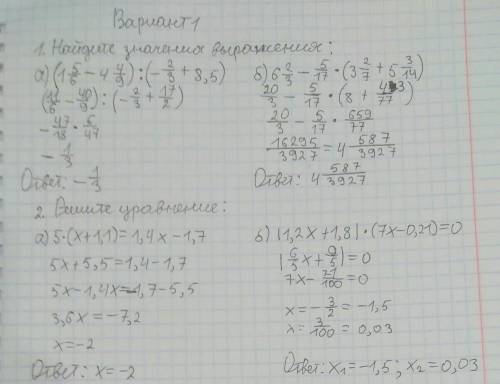 Вариант 1
1. Найдите значения выражения:
а) (1 5/6 - 4 4/9) : (-2/3 + 8,5)
(11/6 - 40/9) : (-2/3 + 17/2)
- 47/18 · 6/47
- 1/3
Ответ: - 1/3
б) 6 2/3 - 5/17 · (3 2/7 + 5 3/14)
20/3 - 5/17 · (8 + 43/77)
20/3 - 5/17 · 659/77
16295/3927 = 4 587/3927
Ответ: 4 587/3927
2. Решите уравнение:
а) 5·(x+1,1)=1,4x-1,7
5x+5,5=1,4-1,7
5x-1,4x=-1,7-5,5
3,6x=-7,2
x=-2
Ответ: x=-2
б) |1,2x+1,8|·(7x-0,21)=0
|6/5x+9/5|=0
7x-21/100=0
x=-3/2=-1,5
x=3/100=0,03
Ответ: x₁=-1,5; x₂=0,03